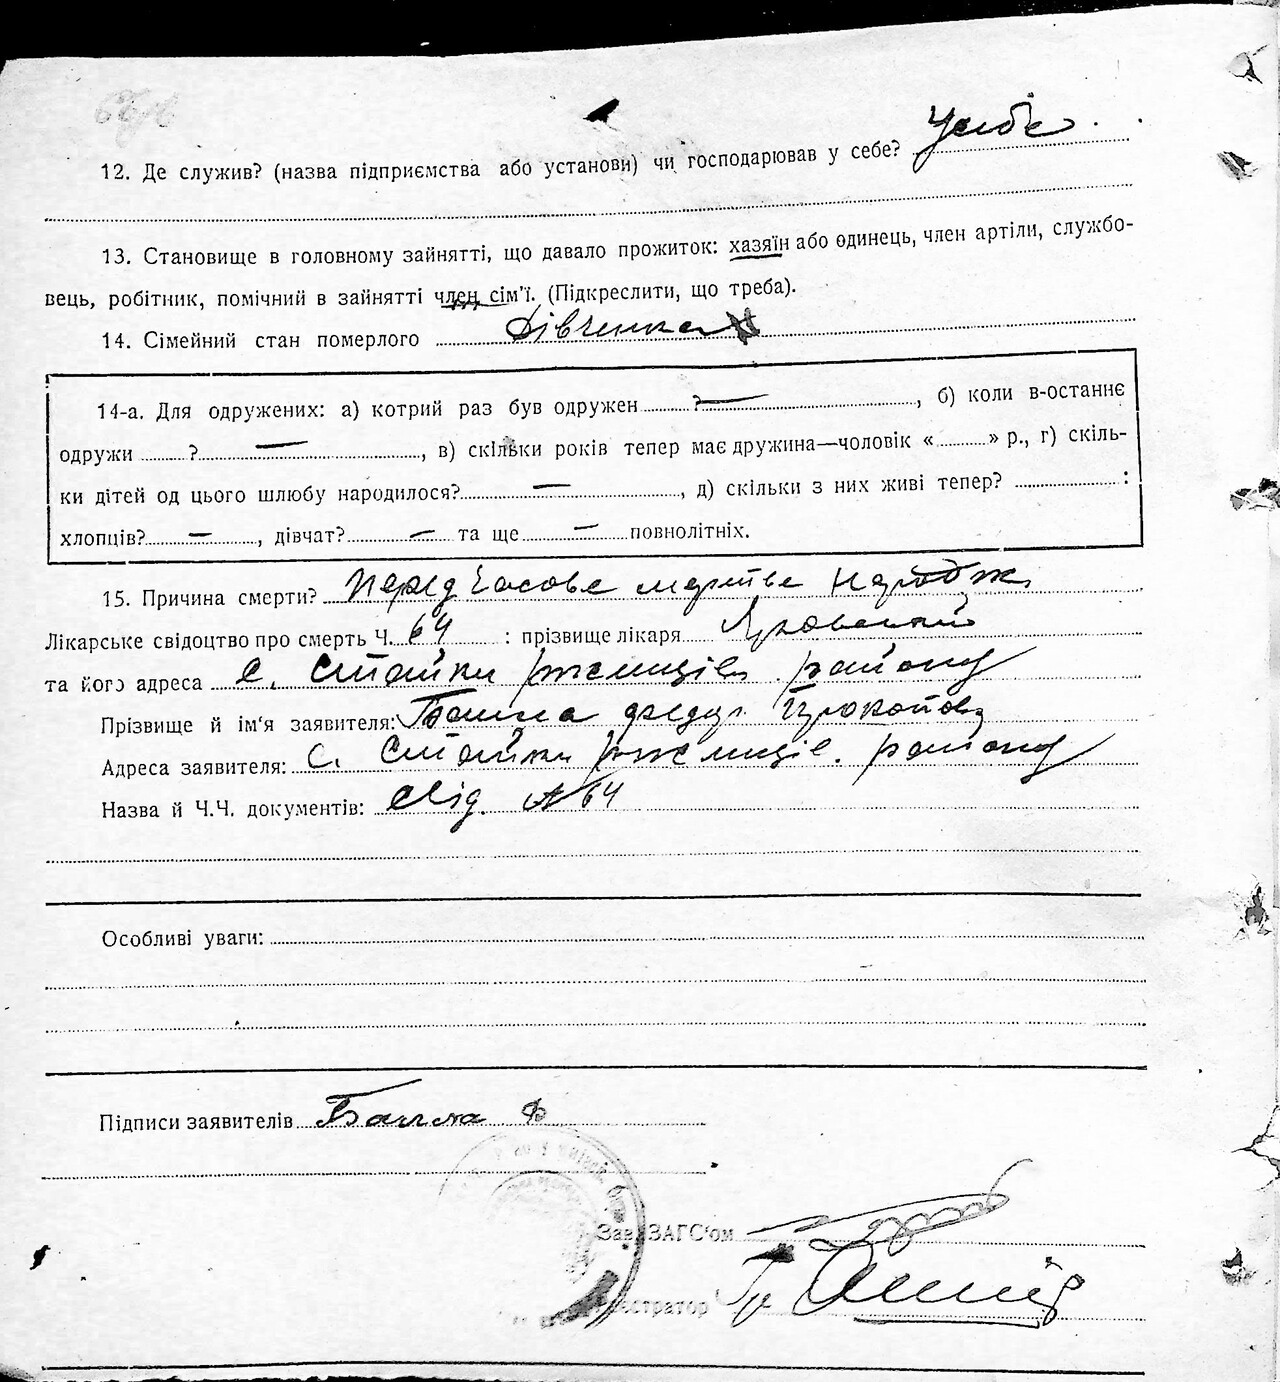 12. Де служив? (назва підприємства або установи) чи господарював у себе? У себе
13. Становище в головному зайнятті, що давало прожиток: хазяїн або одинець, член артіли, службо-
вець, робітник, помічний в зайнятті член сім'ї. (Підкреслити, що треба).
14. Сімейний стан померлого Дівчинка
14-а. Для одружених: а) котрий раз був одружен ? — , б) коли в-останнє
одружи ? — , в) скільки років тепер має дружина—чоловік « » р., г) скіль-
ки дітей од цього шлюбу народилося? — , д) скільки з них живі тепер? :
хлопців? — , дівчат? — та ще — повнолітніх.
15. Причина смерти? Передчасове мертве народж
Лікарське свідоцтво про смерть Ч. 64 : прізвище лікаря
та його адреса с. Стайки ржищів. району
Прізвище й ім'я заявителя: Федур Прокопов
Адреса заявителя: с. Стайки ржищів. району
Назва й Ч.Ч. документів: Свід. № 64
Особливі уваги:
Підписи заявителів Ф
Зав. ЗАГС'ом
естратор